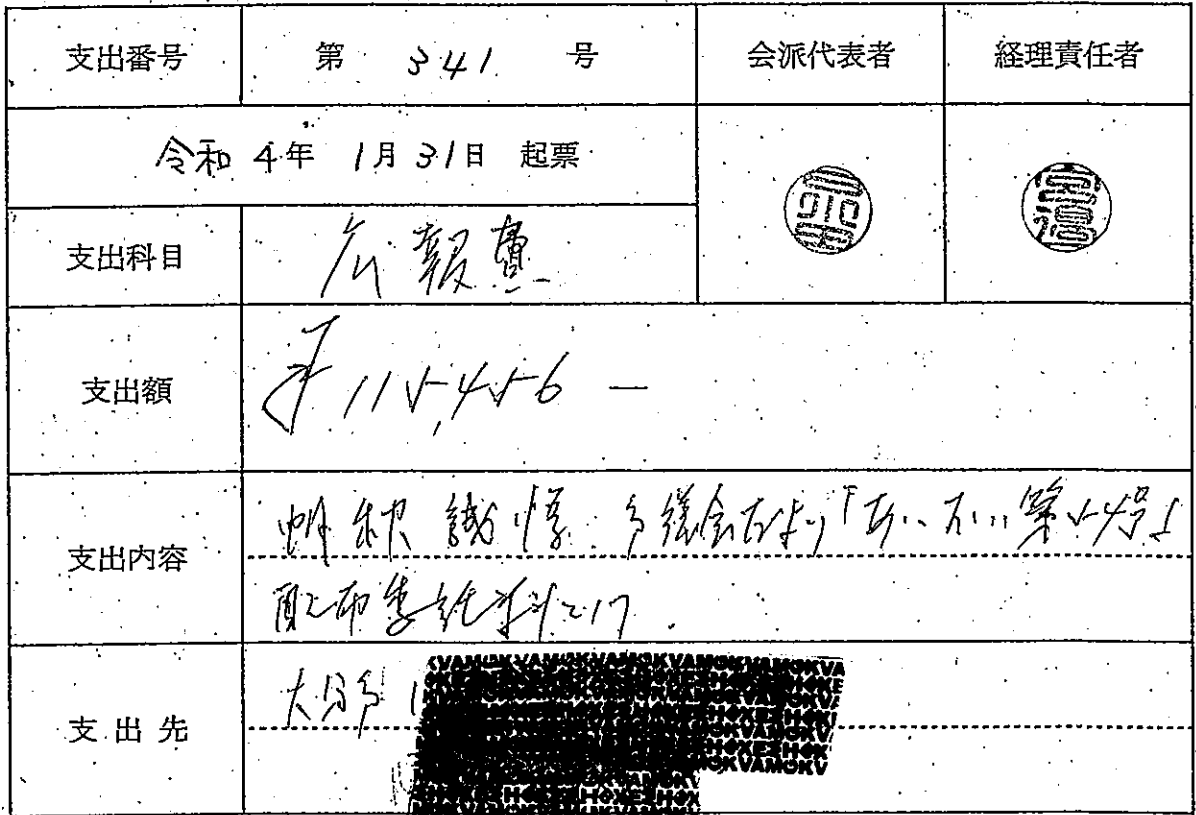 支出番号 第 341 号 会派代表者 経理責任者
令和 4年 1月 31日 起票
支出科目 広報費
支出額 115,456 —
支出内容 帆秋誠悟 市議会だより「 第54号」
配布委託料として
支出先 大分市